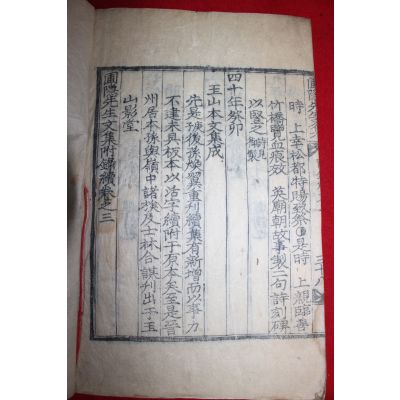 時 上幸松都特賜致祭是時 上親臨善
竹橋覽血痕效 英廟朝故事製二句詩刻碑
以竪之
四十年癸卯
玉山本文集成
先是殀後孫煥翼重刊續集有新增而以事力
不逮未具板本以活字續附于原本矣至是晉
州居本孫與嶺中諸樸及士林合謀刊出于玉
山影堂
圃隱先生文集附錄續卷之三